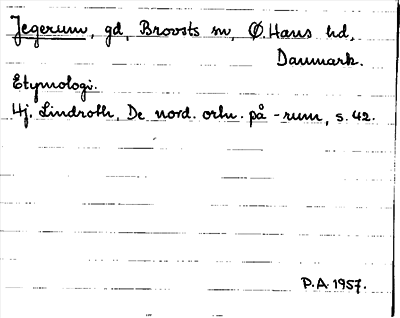 Jegerum, gd, Brovsts sn, Ø. Hans hd,
Danmark.
Etymologi.
Hj. Lindroth, De nord. ortn. på -rum, s. 42.
P.A. 1957.